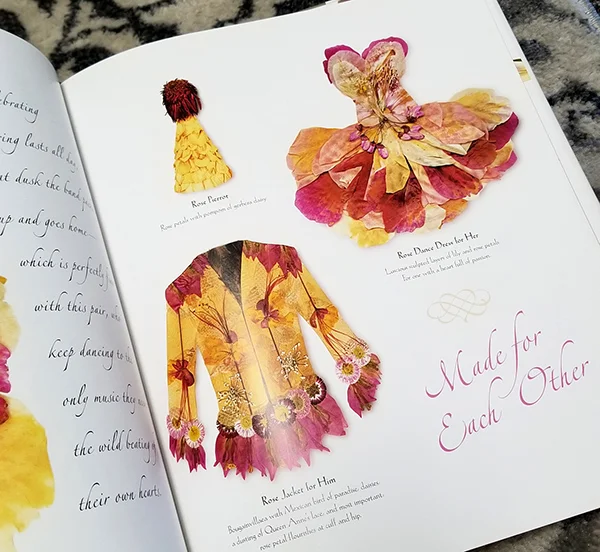 lasts all day
at dusk the band
up and goes home
which is perfectly
with this pair, who
keep dancing to the
only music they
the wild beating of
their own hearts.
Rose Pierrot
Rose petals with pompom of gerbera daisy.
Rose Dance Dress for Her
Luscious sculpted layers of lily and rose petals
for one with a heart full of passion.
Rose Jacket for Him
Bougainvillaea with Mexican bird of paradise, daisies,
a dusting of Queen Anne's lace, and most important,
rose petal flourishes at cuff and hip.
Made for
Each Other